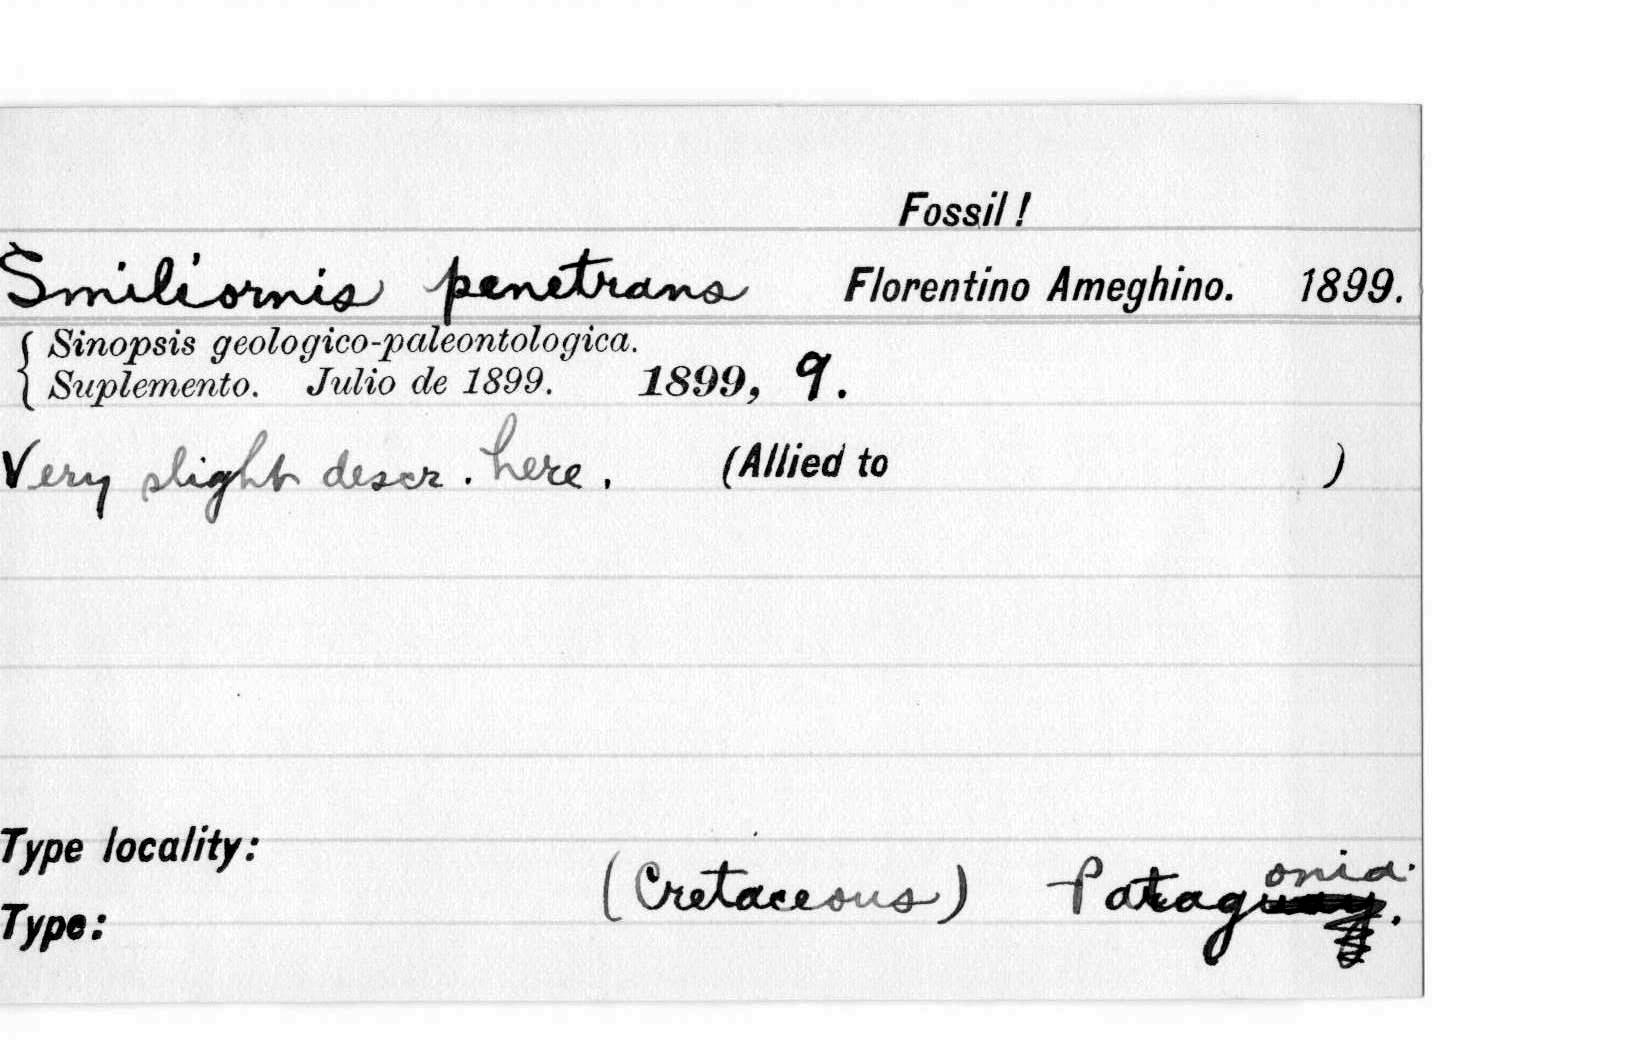 Fossil!
Smiliornis penetrans Florentino Ameghino. 1899.
Sinopsis geologico-paleontologica.
Suplemento. Julio de 1899. 1899, 9.
Very slight descr. here. (Allied to )
Type locality:
(Cretaceous) Patagonia.
Type: